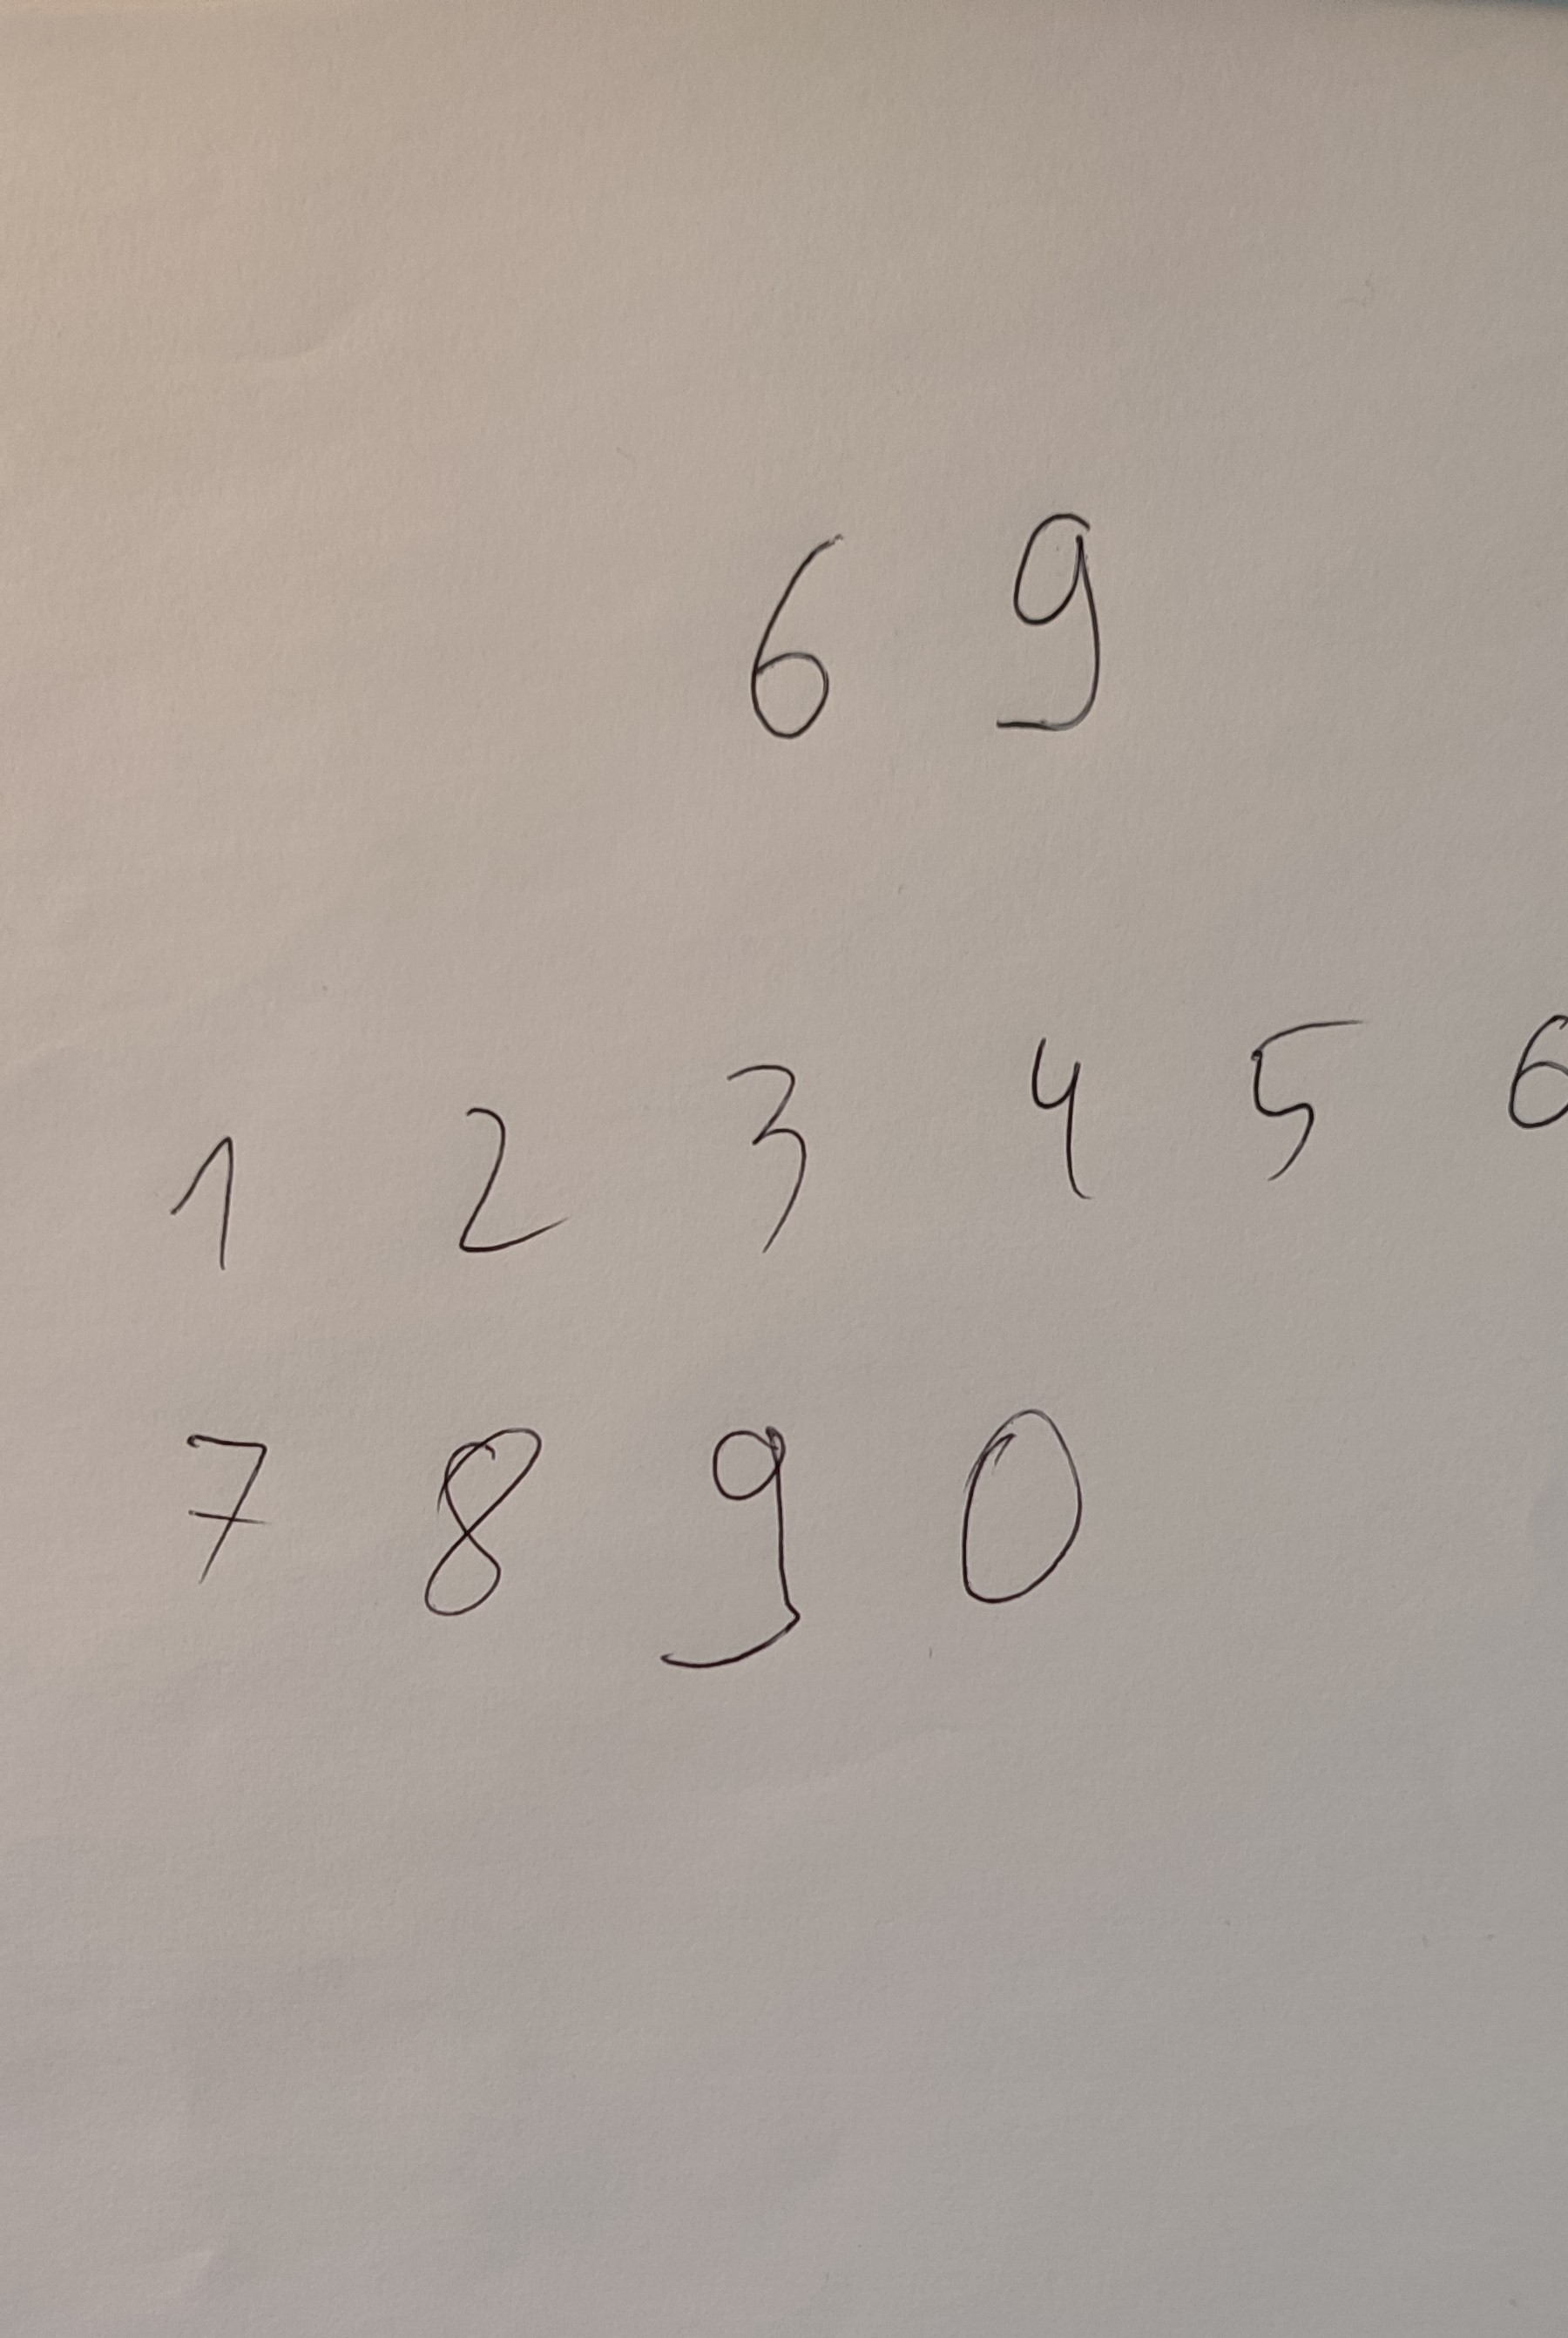 6 9
1 2 3 4 5 6
7 8 9 0